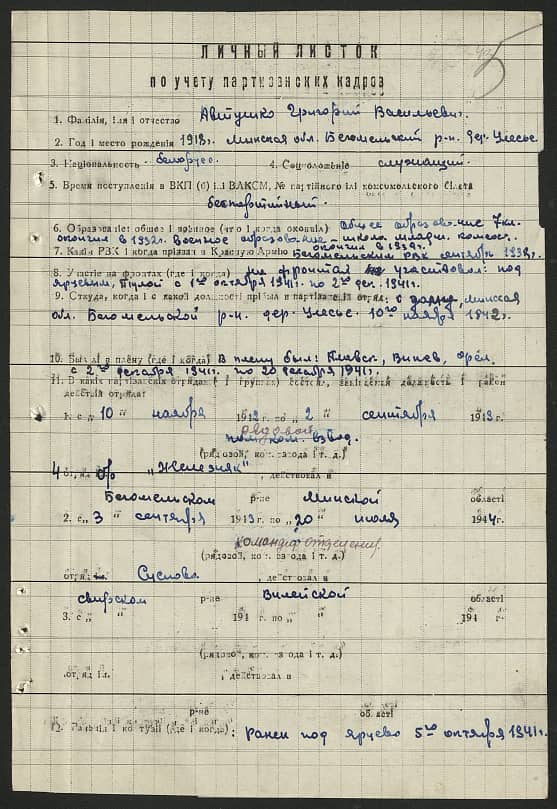 5
ЛИЧНЫЙ ЛИСТОК
по учету партизанских кадров
1. Фамілія, імя і отчество Автушко Григорий Васильевич.
2. Год і место рождения 1918г. Минская обл. Бегомельский р-н. дер. Улесье.
3. Національность белорус. 4. Соцположеніе служащий.
5. Время поступления в ВКП (б) ілі ВЛКСМ, № партійного ілі комсомольского білета
беспартийный.
6. Образованіе: общее і военное (что і когда окончіл) общее образование 7кл.
окончил в 1932г. военное образование - школа младш. комсост. окончил в 1939г.
7. Какім РВК і когда прізван в Красную Армію Бегомельским РВК сентябрь 1938г.
8. Участіе на фронтах (где і когда) на фронтах участвовал: под
Ярцевым, Тулой с 1го октября 1941г. по 2го дек. 1941г.
9. Откуда, когда і с какой должності прібыл в партізанскій отряд: с дому, минская
обл. Бегомельской р-н. дер. Улесье 10го ноября 1942г.
10. Был лі в плену (где і когда) В плену был: Орёл.
с 2го декабря 1941г. по 20 декабря 1941г.
11. В какіх партізанскіх отрядах (і группах) состоял, занімаемая должность і район
действій отряда:
1. с „ 10 “ ноября 1942 г. по „ 2 “ сентября 1943 г.
рядовой
пом. ком. взвод.
(рядовой, ком. взвода і т. д.)
отряд бр „Железняк“, действовал в
Бегомельском р-не Минской області
2. с „ 3 “ сентября 1943 г. по „ 20 “ июля 1944г.
командир отделения
(рядовой, ком. взвода і т. д.)
отряд Суслова, действовал в
свирском р-не Вилейской області
3. с „ “ 194 г. по „ “ 194 г.
(рядовой, ком. взвода і т. д.)
отряд ім. , действовал в
р-не області
12. Раненія і контузіі (где і когда): ранен под Ярцево 5го октября 1941г.